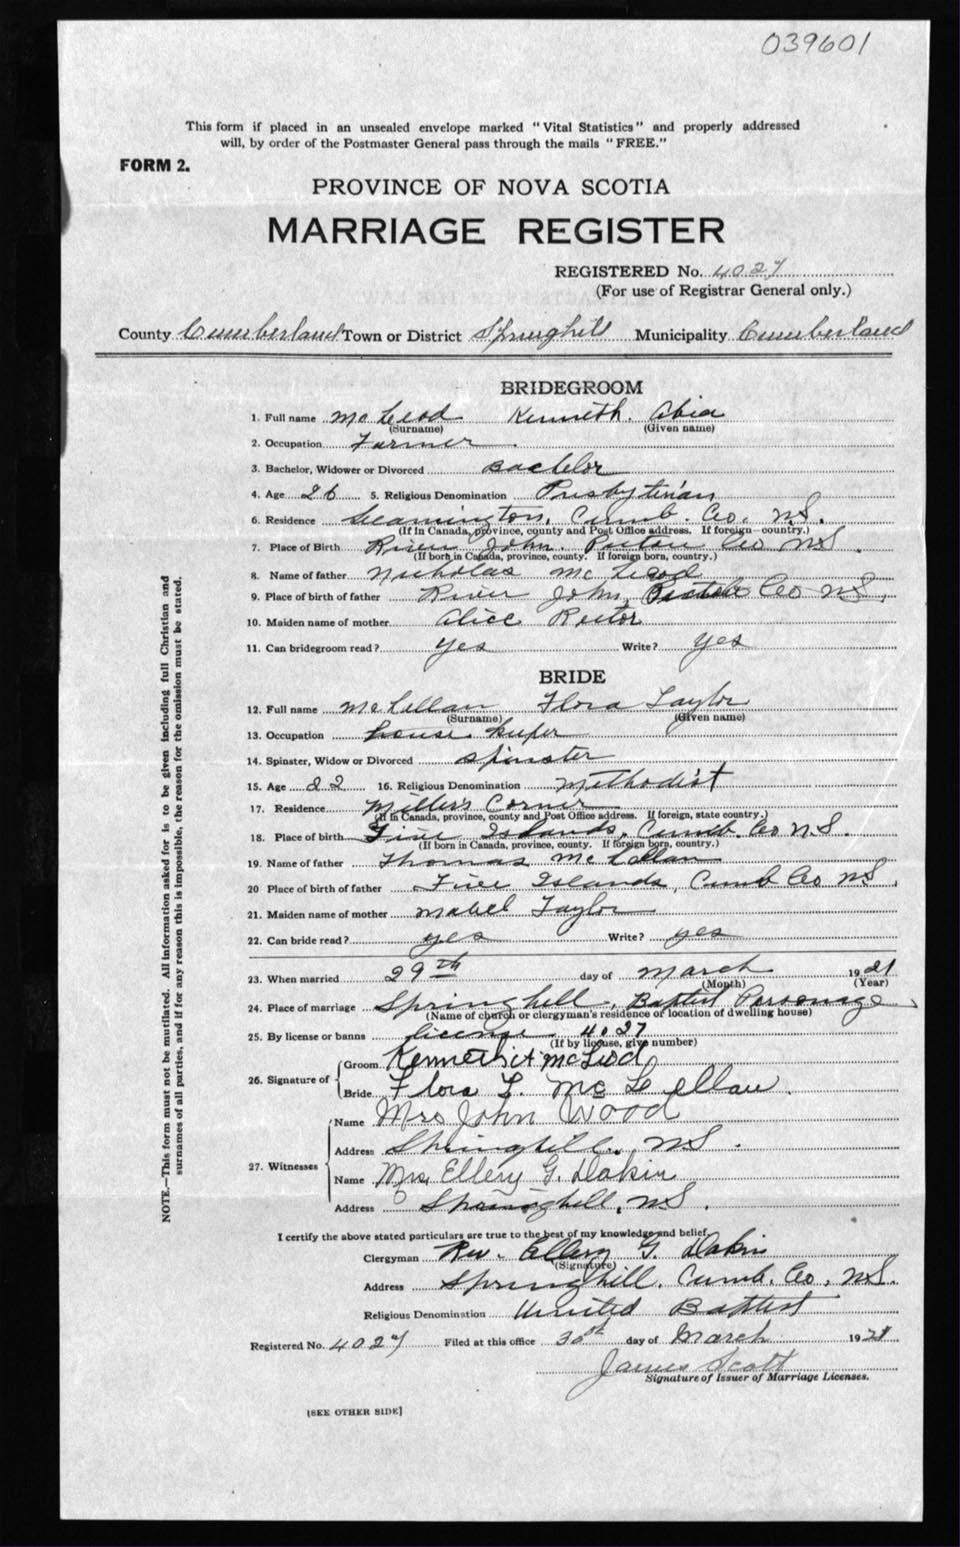 039601
This form if placed in an unsealed envelope marked "Vital Statistics" and properly addressed
will, by order of the Postmaster General pass through the mails "FREE."
FORM 2.
PROVINCE OF NOVA SCOTIA
MARRIAGE REGISTER
REGISTERED No. 4027
(For use of Registrar General only.)
County Cumberland Town or District Springhill Municipality Cumberland
BRIDEGROOM
1. Full name McLeod Kenneth Abia
(Surname) (Given name)
2. Occupation Farmer
3. Bachelor, Widower or Divorced Bachelor
4. Age 26 5. Religious Denomination Presbyterian
6. Residence Leamington, Cumb. Co. NS.
(If in Canada, province, county and Post Office address. If foreign country.)
7. Place of Birth River John. Pictou Co NS.
(If born in Canada, province, county. If foreign born, country.)
8. Name of father Nicholas McLeod
9. Place of birth of father River John, Co NS,
10. Maiden name of mother Alice Rector
11. Can bridegroom read? yes Write? yes
BRIDE
12. Full name McLellan Flora Taylor
(Surname) (Given name)
13. Occupation house keeper
14. Spinster, Widow or Divorced spinster
15. Age 22 16. Religious Denomination Methodist
17. Residence Millers Corner
(If in Canada, province, county and Post Office address. If foreign, state country.)
18. Place of birth Five Islands, Cumb. Co NS.
(If born in Canada, province, county. If foreign born, country.)
19. Name of father Thomas McLellan
20 Place of birth of father Five Islands, Cumb Co NS.
21. Maiden name of mother Mabel Taylor
22. Can bride read? yes Write? yes
23. When married 29th day of March 1921
(Month) (Year)
24. Place of marriage Springhill, Baptist Parsonage,
(Name of church or clergyman's residence or location of dwelling house)
25. By license or banns license 4027
(If by license, give number)
26. Signature of
Groom Kenneth A McLeod
Bride Flora T. McLellan
27. Witnesses
Name Mrs John Wood
Address Springhill, NS.
Name Mrs. Ellery G. Dakin
Address Springhill, NS.
I certify the above stated particulars are true to the best of my knowledge and belief.
Clergyman Rev. Ellery G. Dakin
(Signature)
Address Springhill. Cumb. Co, NS.
Religious Denomination United Baptist
Registered No. 4027 Filed at this office 30th day of March 1921
James Scott
Signature of Issuer of Marriage Licenses.
[SEE OTHER SIDE]
NOTE.—This form must not be mutilated. All information asked for is to be given including full Christian and
surnames of all parties, and if for any reason this is impossible, the reason for the omission must be stated.